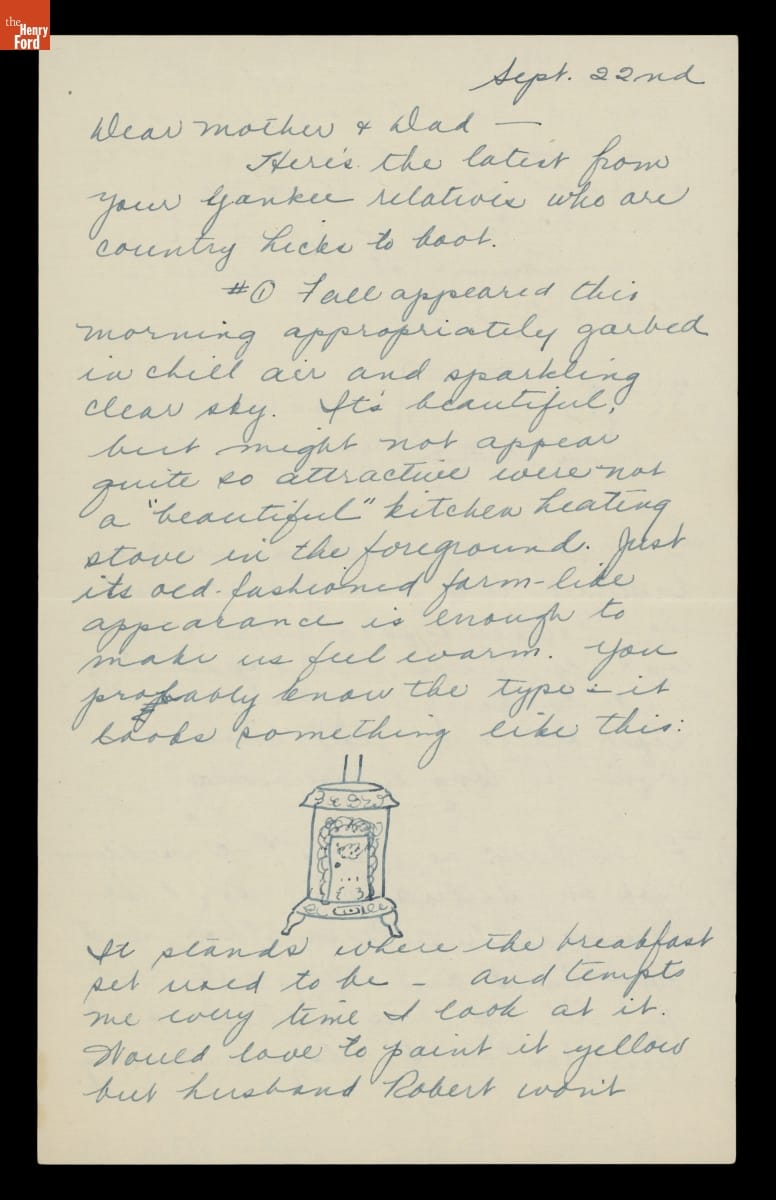 the
Henry
Ford
Sept. 22nd
Dear Mother & Dad —
Here's the latest from
your Yankee relatives who are
country hicks to boot.
#① Fall appeared this
morning appropriately garbed
in chill air and sparkling
clear sky. It's beautiful,
but might not appear
quite so attractive were not
a "beautiful" kitchen heating
stove in the foreground. Just
its old-fashioned farm-like
appearance is enough to
make us feel warm. You
probably know the type - it
looks something like this:
It stands where the breakfast
set used to be - and tempts
me every time I look at it.
Would love to paint it yellow
but husband Robert won't